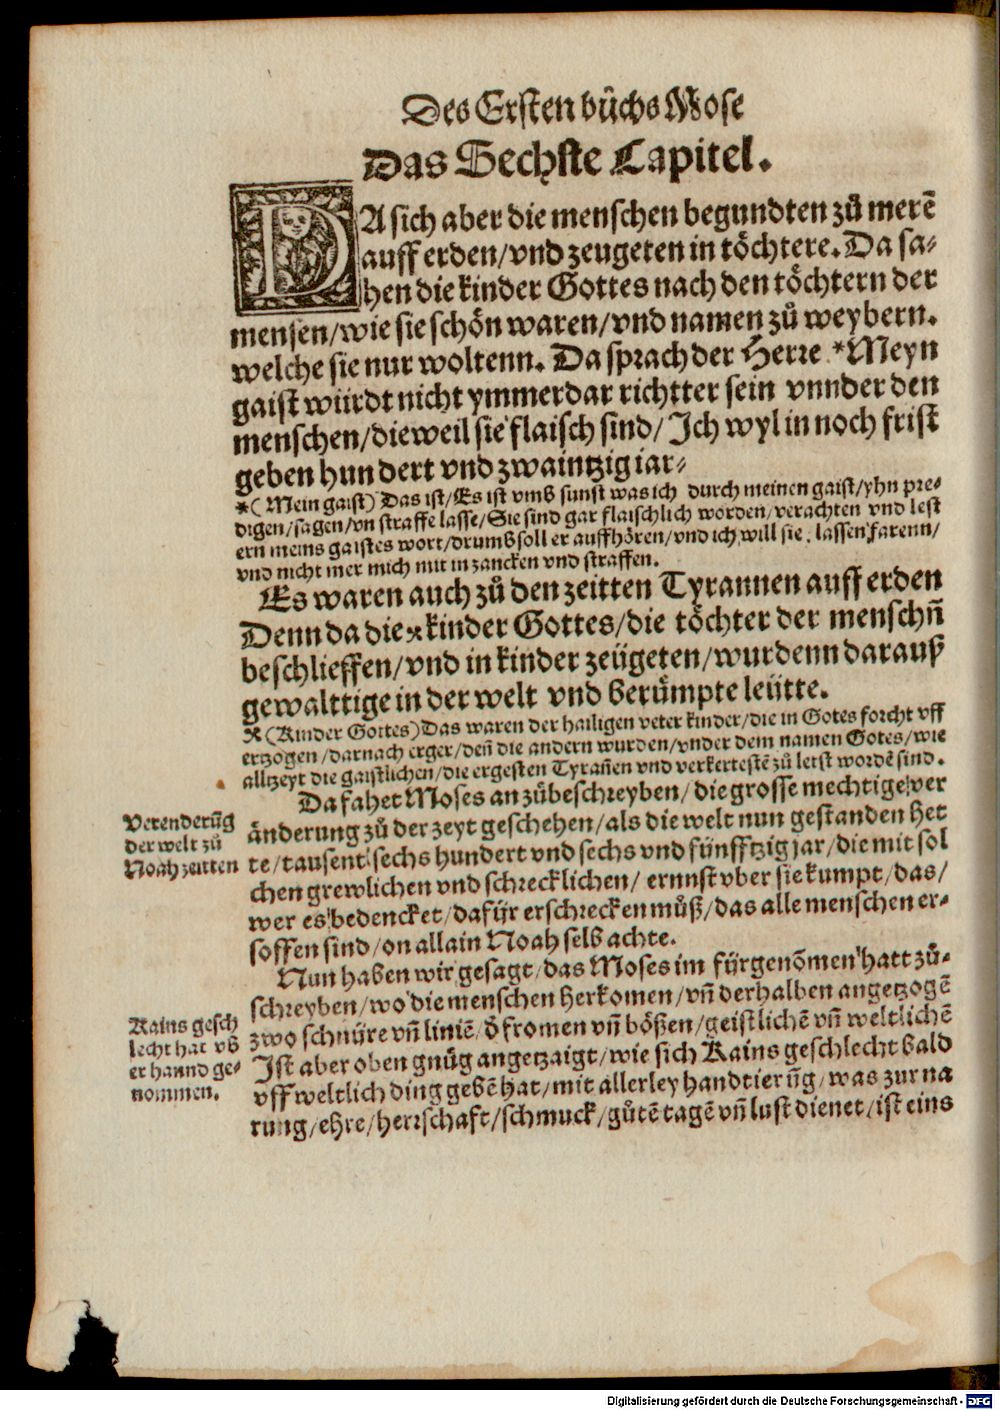 Des Ersten bůchs Mose
Das Sechste Capitel.
DA sich aber die menschen begundten zů merē
auff erden/vnd zeugeten in töchtere. Da sa-
hen die kinder Gottes nach den töchtern der
mensen/wie sie schön waren/vnd namen zů weybern.
welche sie nur woltenn. Da sprach der Herre *Meyn
gaist würdt nicht ymmerdar richtter sein vnnder den
menschen/dieweil sie flaisch sind/ Ich wyl in noch frist
geben hundert vnd zwaintzig iar-
*(Mein gaist) Das ist/Es ist vmb sunst was ich durch meinen gaist/yhn pre-
digen/sagen/vn straffe lasse/Sie sind gar flaischlich worden/verachten vnd lest
ern meins gaistes wort/drumb soll er auffhören/vnd ich will sie. lassen farenn/
vnd nicht mer mich mit in zancken vnd straffen.
Es waren auch zů den zeitten Tyrannen auff erden
Denn da die *kinder Gottes/die töchter der menschn̄
beschlieffen/vnd in kinder zeügeten/wurdenn darauß
gewalttige in der welt vnd berümpte leütte.
*(Kinder Gottes) Das waren der hailigen veter kinder/die in Gotes forcht vff
ertzogen/darnach erger/den̄ die andern wurden/vnder dem namen Gotes/wie
alltzeyt die gaistlichen/die ergesten Tyran̄en vnd verkertestē zů letst wordē sind.
Da fahet Moses an zůbeschreyben/die grosse mechtige ver
Verenderūg
änderung zů der zeyt geschehen/als die welt nun gestanden het
der welt zů
te/tausent sechs hundert vnd sechs vnd fünfftzig jar/die mit sol
Noah zeitten
chen grewlichen vnd schrecklichen/ ernnst vber sie kumpt/das/
wer es bedencket/dafür erschrecken můß/das alle menschen er-
soffen sind/on allain Noah selb achte.
Nun haben wir gesagt/das Moses im fürgenōmen hatt zů-
schreyben/wo die menschen herkomen/vn̄ derhalben angetzogē
Kains gesch
zwo schnüre vn̄ liniē/ð fromen vn̄ bößen/geistlichē vn̄ weltlichē
lecht hat vb
Ist aber oben gnůg angetzaigt/wie sich Kains geschlecht bald
er hannd ge-
vff weltlich ding gebē hat/mit allerley handtierūg/was zur na
nommen.
rung/ehre/herrschaft/schmuck/gůtē tagē vn̄ lust dienet/ist eins
Digitalisierung gefördert durch die Deutsche Forschungsgemeinschaft - DFG